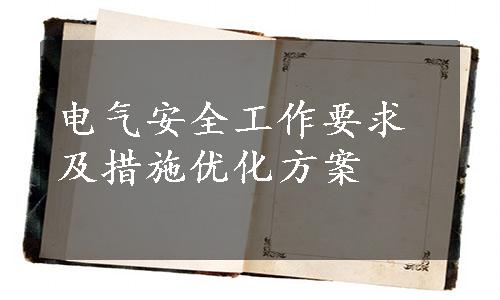 电气安全工作要求
及措施优化方案